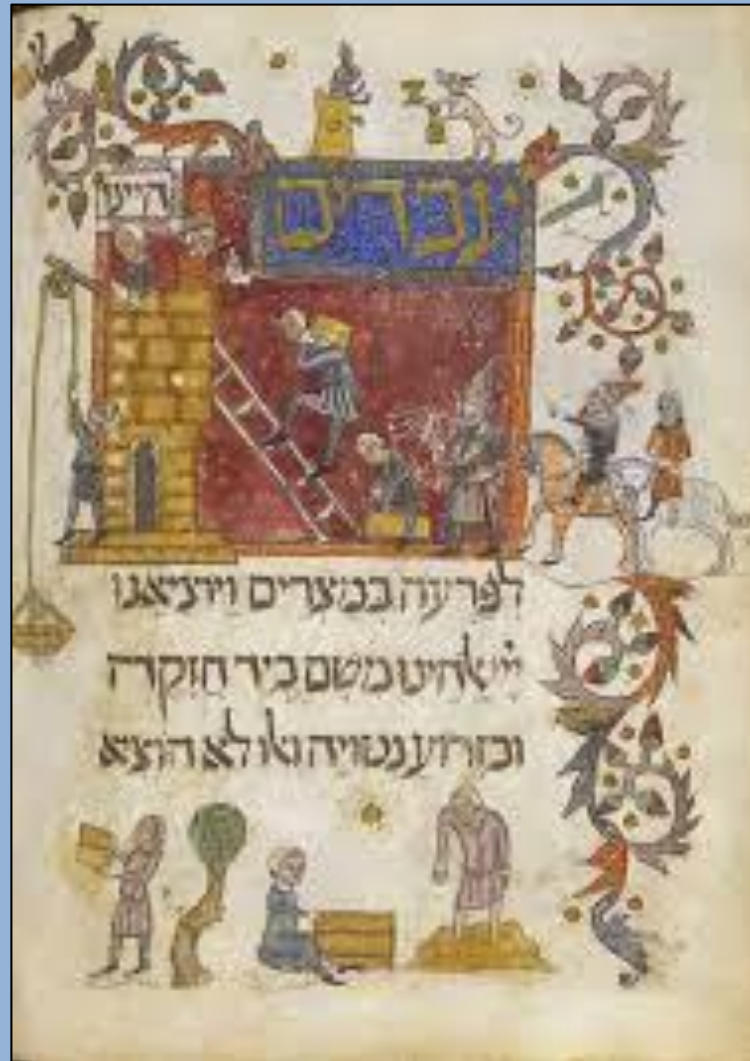 עבדים
היינו
לפרעה במצרים ויוציאנו
ייי אלהינו משם ביד חזקה
ובזרוע נטויה ואלו לא הוציא